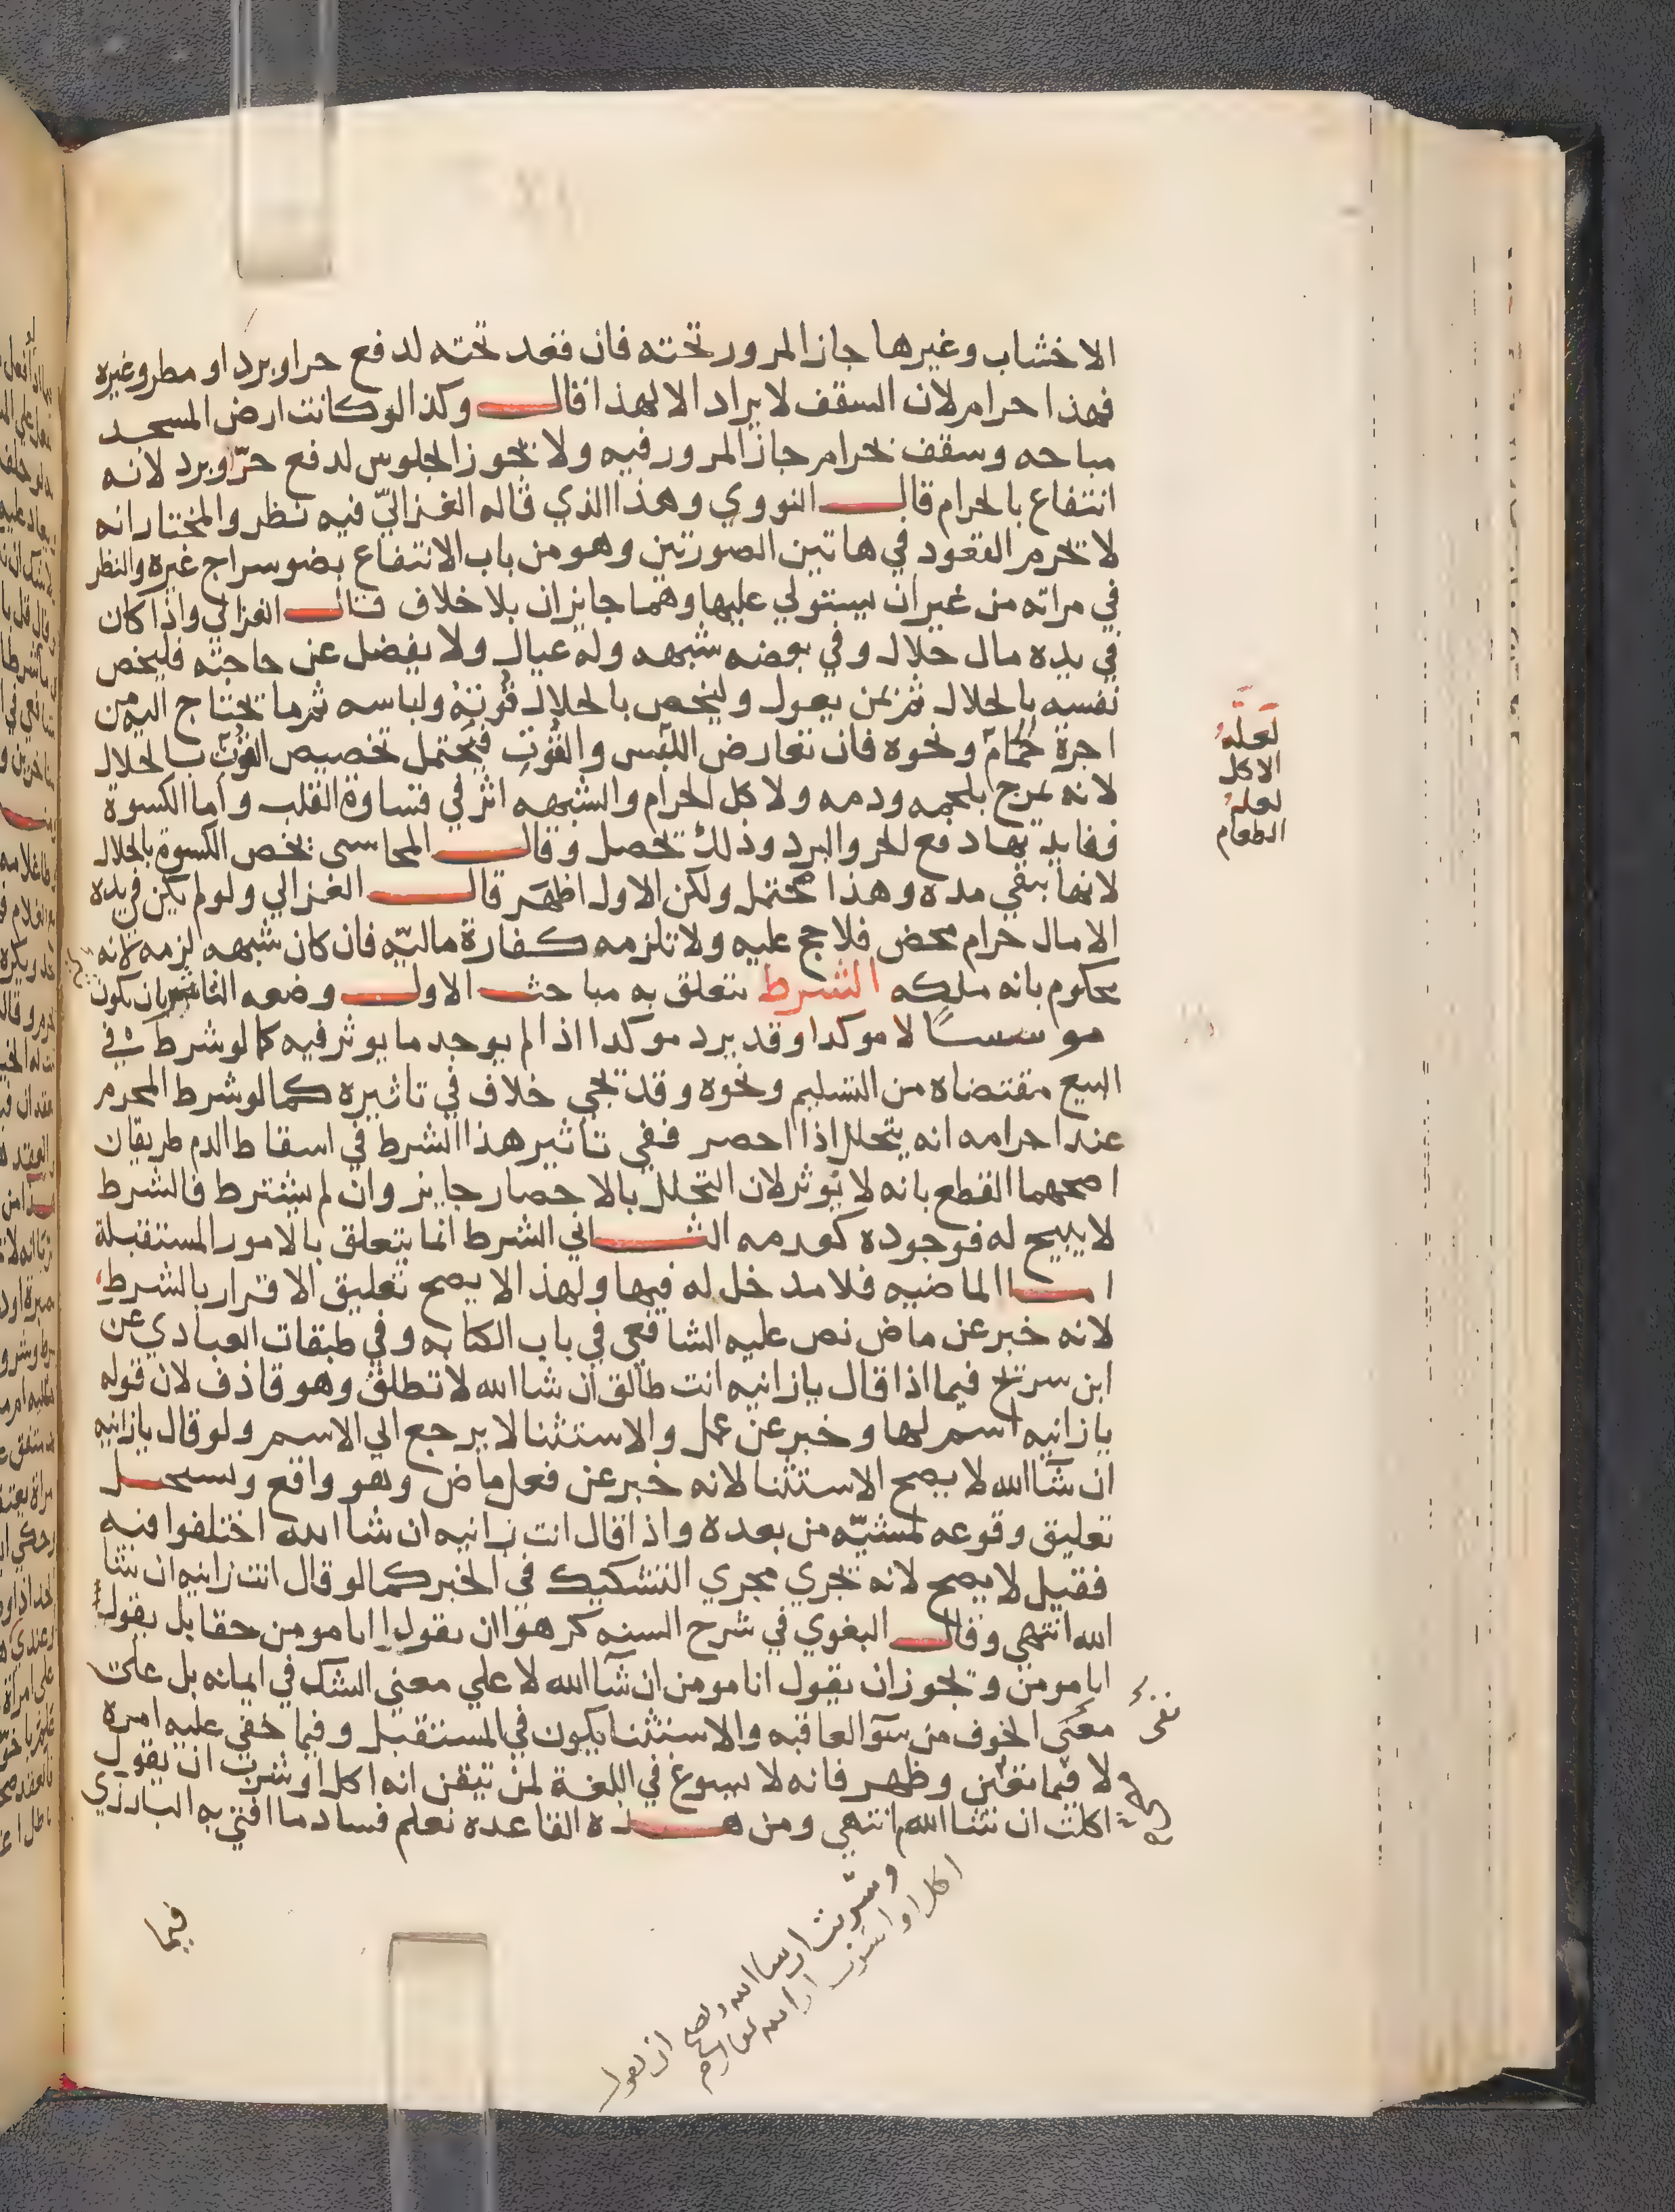 الاخشاب وغيرها جاز المرور تحته فان قعد تحته لدفع حر او برد او مطر وغيره
فهذا حرام لان السقف لا يراد الا لهذا قال وكذا لو كانت ارض المسجد
مباحه وسقف بحرام جاز المرور فيه ولا يجوز الجلوس لدفع حرّ او برد لانه
انتفاع بالحرام قال النووي وهذا الذي قاله الغزاليّ فيه نظر والمختار انه
لا يحرم القعود في هاتين الصورتين وهو من باب الانتفاع بضو سراج غيره والنظر
في مراته من غير ان يستولي عليها وهما جايزان بلا خلاف قال الغزالي واذا كان
في يده مال حلال وفي بعضه شبهه وله عيال ولا يفضل عن حاجته فليخص
نفسه بالحلال ثم بمن يعول وليخص بالحلال قوته ولباسه ثم ما يحتاج اليه من
اجرة حمام ونحوه فان تعارض اللبس والقوت فيحتمل تخصيص القوت بالحلال
لانه يمزج بلحمه ودمه ولا كل الحرام والشبهه اثر في قساوة القلب واما الكسوة
ففايدتها دفع الحر والبرد وذلك يحصل وقال المحاسبي يخص الكسوة بالحلال
لانها تبقي مده وهذا محتمل ولكن الاول اظهر قال الغزالي ولو لم يكن في يده
الا مال حرام محض فلا حج عليه ولا تلزمه كفارة ماليّه فان كان شبهه لزمه لانه
محكوم بانه ملكه الشرط يتعلق به مباحث الاول وضعه التاثير بان يكون
موسسًا لا موكدا وقد يرد موكدا اذا لم يوجد ما يوثر فيه كما لو شرط في
البيع مقتضاه من التسليم ونحوه وقد يجي خلاف في تاثيره كما لو شرط المحرم
عند احرامه انه يتحلل اذا احصر ففي تاثير هذا الشرط في اسقاط الدم طريقان
اصحهما القطع بانه لا يوثر لان التحلل بالاحصار جايز وان لم يشترط فالشرط
لا يبيح له فوجوده كعدمه الثاني الشرط انما يتعلق بالامور المستقبلة
اما الماضيه فلا مدخل له فيها ولهذا لا يصح تعليق الاقرار بالشرط
لانه خبر عن ماض نص عليه الشافعي في باب الكتابه وفي طبقات العبادي عن
ابن سريج فيما اذا قال يا زانيه انت طالق ان شا الله لا تطلق وهو قاذف لان قوله
يا زانيه اسم لها وخبر عن عمل والاستثنا لا يرجع الي الاسم ولو قال يا زانيه
ان شآ الله لا يصح الاستثنا لانه خبر عن فعل ماض وهو واقع ويستحيل
تعليق وقوعه لمشيّه من بعده واذا قال انت زانيه ان شا الله اختلفوا فيه
فقيل لا يصح لانه يجري مجري التشكيك في الخبر كما لو قال انت زانيه ان شا
الله انتهي وقال البغوي في شرح السنه كرهوا ان يقول انا مومن حقا بل يقول
انا مومن ويجوز ان يقول انا مومن ان شآ الله لا علي معني الشك في ايمانه بل علي
معني الخوف من سوّ العاقبه والاستثنا يكون في المستقبل وفيما خفي عليه امره
لا فيما تيقن وظهر فانه لا يسوغ في اللغة لمن تيقن انه اكل او شرب ان يقول
اكلت ان شا الله انتهي ومن هذه القاعده تعلم فساد ما افتي به البارزي
فيما
لعله
الاكل
لعله
الطعام
وشربت ان شا الله ويصح ان يقول